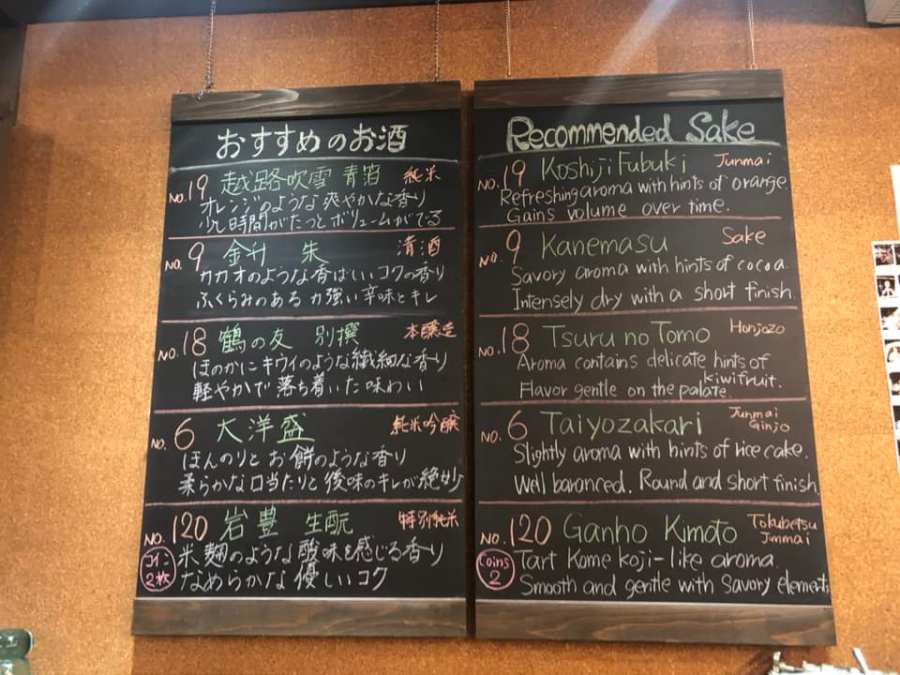 おすすめのお酒
NO.19 越路吹雪 青箔 純米
オレンジのような爽やかな香り
少し時間がたつとボリュームがでる
NO.9 金升 朱 清酒
カカオのような香ばしいコクの香り
ふくらみのある力強い辛味とキレ
NO.18 鶴の友 別撰 本醸造
ほのかにキウイのような繊細な香り
軽やかで落ち着いた味わい
NO.6 大洋盛 純米吟醸
ほんのりとお餅のような香り
柔らかな口当たりと後味のキレが絶妙
NO.120 岩豊 生酛 特別純米
コイン2枚
米麹のような酸味を感じる香り
なめらかな優しいコク
Recommended Sake
NO.19 Koshiji Fubuki Junmai
Refreshing aroma with hints of orange.
Gains volume over time.
NO.9 Kanemasu Sake
Savory aroma with hints of cocoa
Intensely dry with a short finish.
NO.18 Tsuru no Tomo Honjozo
Aroma contains delicate hints of
kiwifruit.
Flavor gentle on the palate.
NO.6 Taiyozakari Junmai Ginjo
Slightly aroma with hints of rice cake.
Well baranced. Round and short finish
NO.120 Ganho Kimoto Tokubetsu Junmai
Coins 2
Tart Kome koji-like aroma.
Smooth and gentle with savory elements